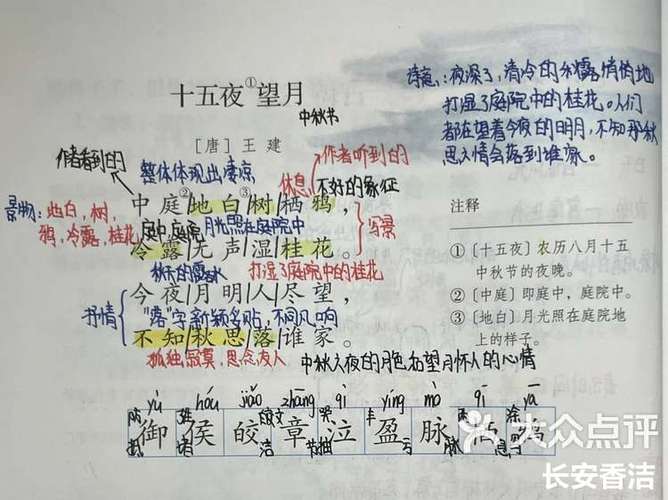 十五夜①望月
中秋节
[唐] 王 建
作者看到的
整体体现出凄凉
作者听到的
休息
不好的象征
中庭②地白③树栖鸦，
景物：地白，树，
鸦，冷露，桂花
庭中，庭院
月光照在庭院中
写景
冷露无声湿桂花。
秋天的露水
打湿了庭院中的桂花
今夜月明人尽望，
抒情
"落"字新颖
不同凡响
不知秋思落谁家。
孤独寂寞，思念友人
中秋之夜的月色和望月怀人的心情
诗意：夜深了，清冷的秋露悄悄地
打湿了庭院中的桂花。人们
都在望着今夜的明月，不知那秋
思之情会落到谁家。
注释
①〔十五夜〕农历八月十五
中秋节的夜晚。
②〔中庭〕即庭中，庭院中。
③〔地白〕月光照在庭院地
上的样子。
yù hóu jiǎo zhāng qì yíng mò yā
御 侯 皎 章 泣 盈 脉 栖 鸦
大众点评
长安香洁